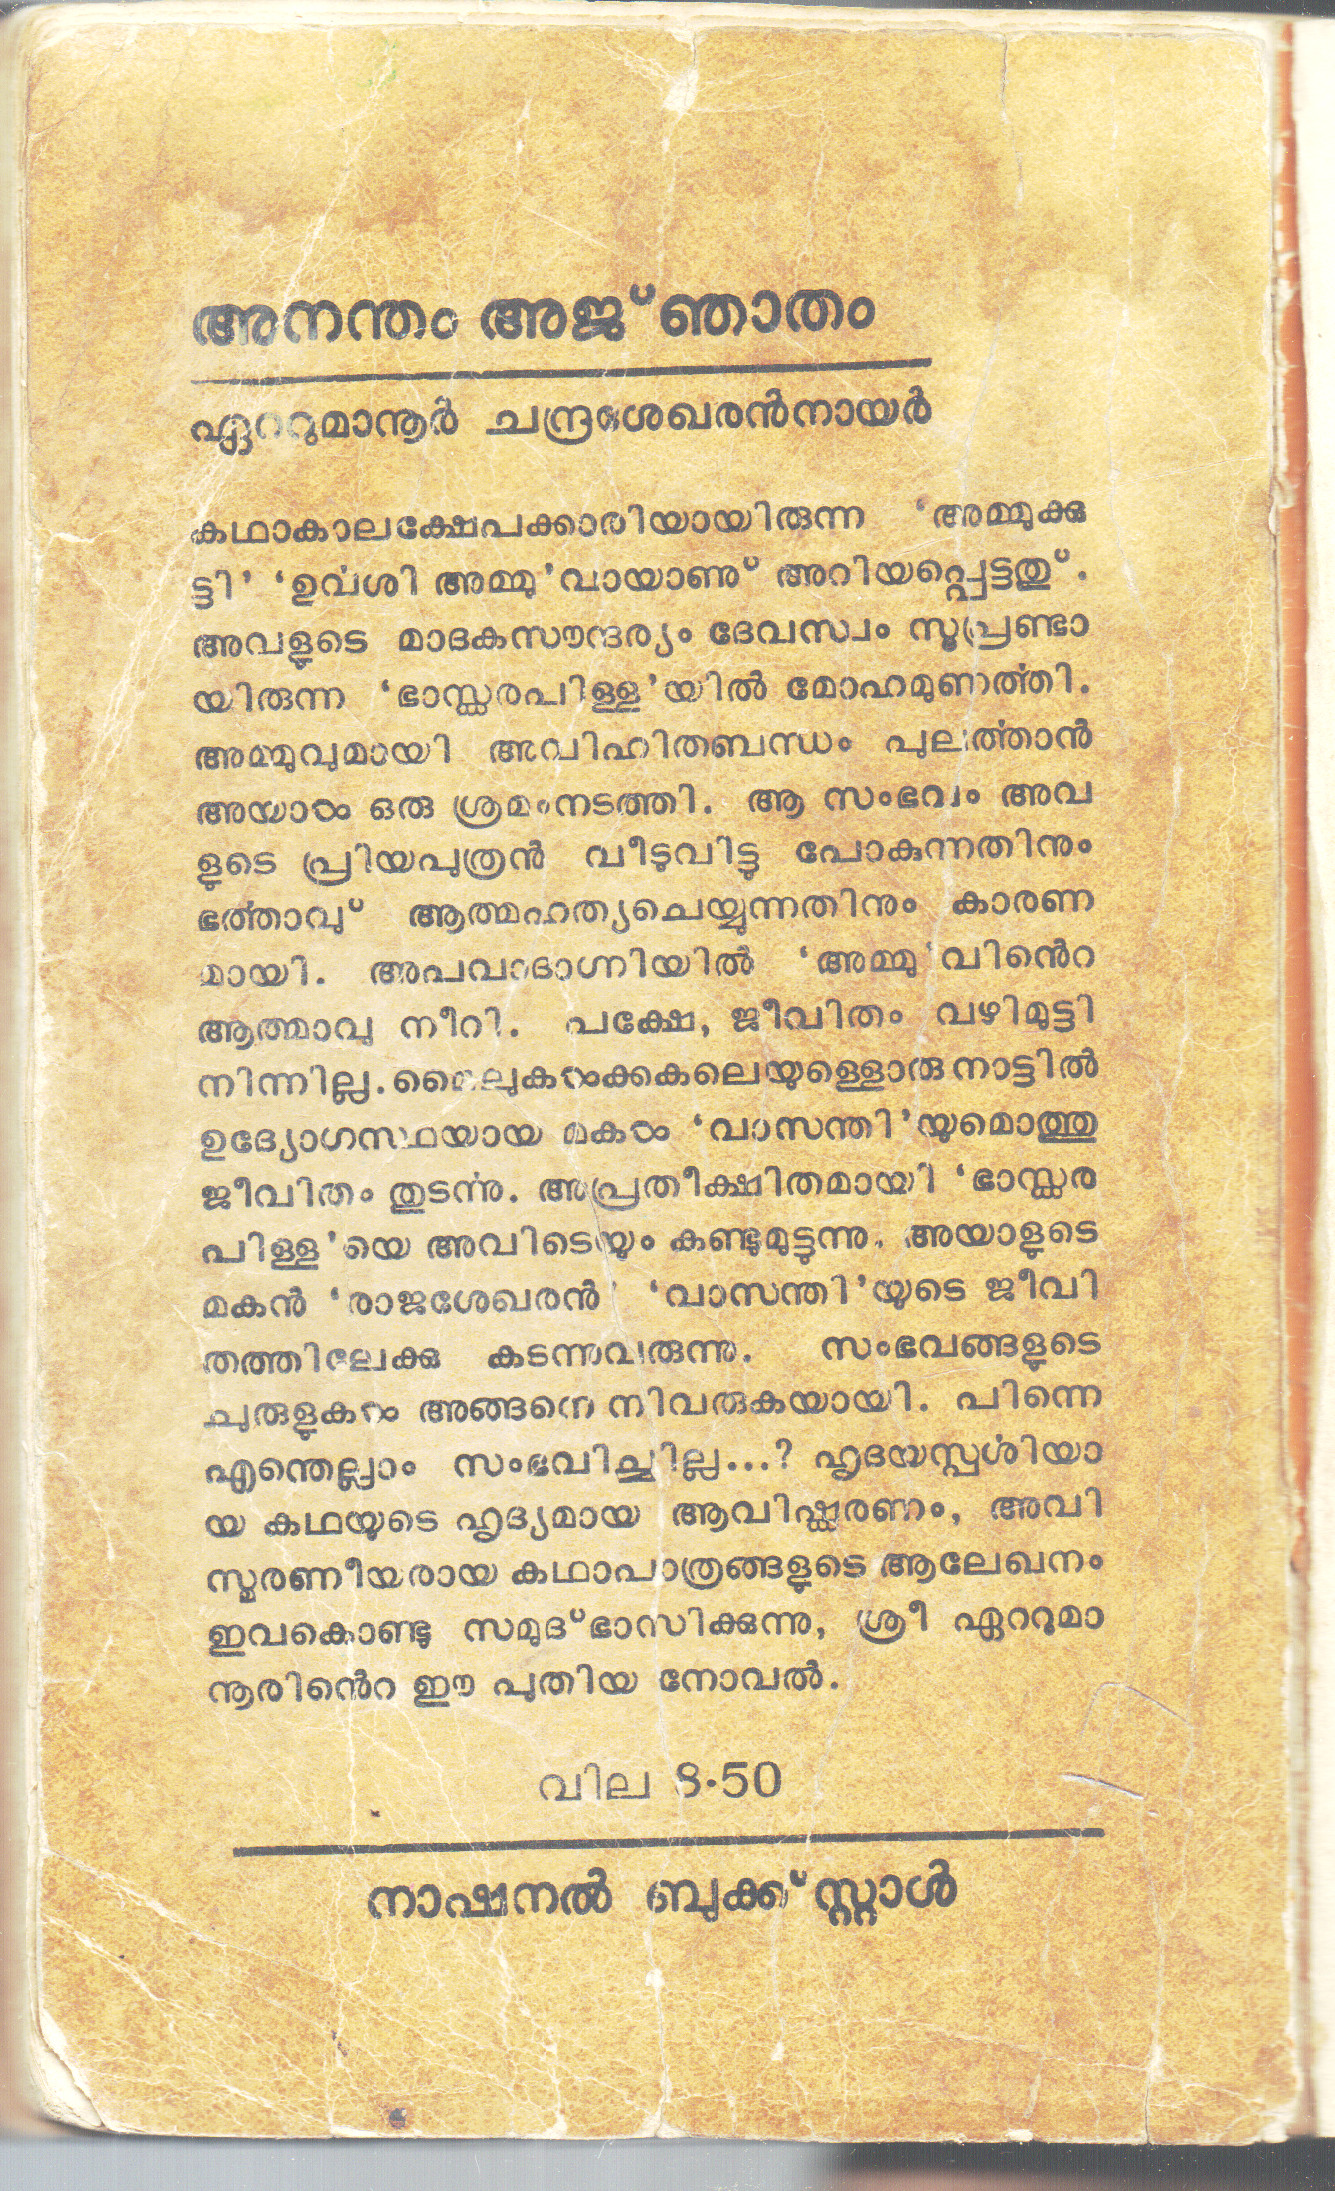 അനന്തം അജ്ഞാതം
ഏററുമാനൂർ ചന്ദ്രശേഖരൻനായർ
കഥാകാലക്ഷേപക്കാരിയായിരുന്ന ‘അമ്മുക്കു
ട്ടി’ ‘ഉൎവശി അമ്മു’വായാണു് അറിയപ്പെട്ടതു്.
അവളുടെ മാദകസൗന്ദര്യം ദേവസ്വം സൂപ്രണ്ടാ
യിരുന്ന ‘ഭാസ്കരപിള്ള’യിൽ മോഹമുണൎത്തി.
അമ്മുവുമായി അവിഹിതബന്ധം പുലൎത്താൻ
അയാൾ ഒരു ശ്രമംനടത്തി. ആ സംഭവം അവ
ളുടെ പ്രിയപുത്രൻ വീടുവിട്ടു പോകുന്നതിനും
ഭൎത്താവു് ആത്മഹത്യചെയ്യുന്നതിനും കാരണ
മായി. അപവാദാഗ്നിയിൽ ‘അമ്മു’വിൻെറ
ആത്മാവു നീറി. പക്ഷേ, ജീവിതം വഴിമുട്ടി
നിന്നില്ല. മൈലുകൾക്കകലെയുള്ളൊരു നാട്ടിൽ
ഉദ്യോഗസ്ഥയായ മകൾ ‘വാസന്തി’യുമൊത്തു
ജീവിതം തുടൎന്നു. അപ്രതീക്ഷിതമായി ‘ഭാസ്കര
പിള്ള’യെ അവിടെയും കണ്ടുമുട്ടുന്നു. അയാളുടെ
മകൻ ‘രാജശേഖരൻ’ ‘വാസന്തി’യുടെ ജീവി
തത്തിലേക്കു കടന്നുവരുന്നു. സംഭവങ്ങളുടെ
ചുരുളുകൾ അങ്ങനെ നിവരുകയായി. പിന്നെ
എന്തെല്ലാം സംഭവിച്ചില്ല...? ഹൃദയസ്പൎശിയാ
യ കഥയുടെ ഹൃദ്യമായ ആവിഷ്കരണം, അവി
സ്മരണീയരായ കഥാപാത്രങ്ങളുടെ ആലേഖനം
ഇവകൊണ്ടു സമുദ്ഭാസിക്കുന്നു, ശ്രീ ഏററൂമാ
നൂരിൻെറ ഈ പുതിയ നോവൽ.
വില 8·50
നാഷനൽ ബുക്ക്സ്റ്റാൾ